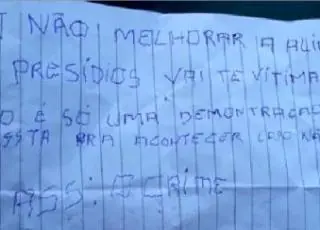 NÃO MELHORAR A ALI
PRESÍDIOS VAI TE VÍTIMA
O É SÓ UMA DEMONTRACAO
PRA ACONTECER CASO NÃ
ASS: O CRIME